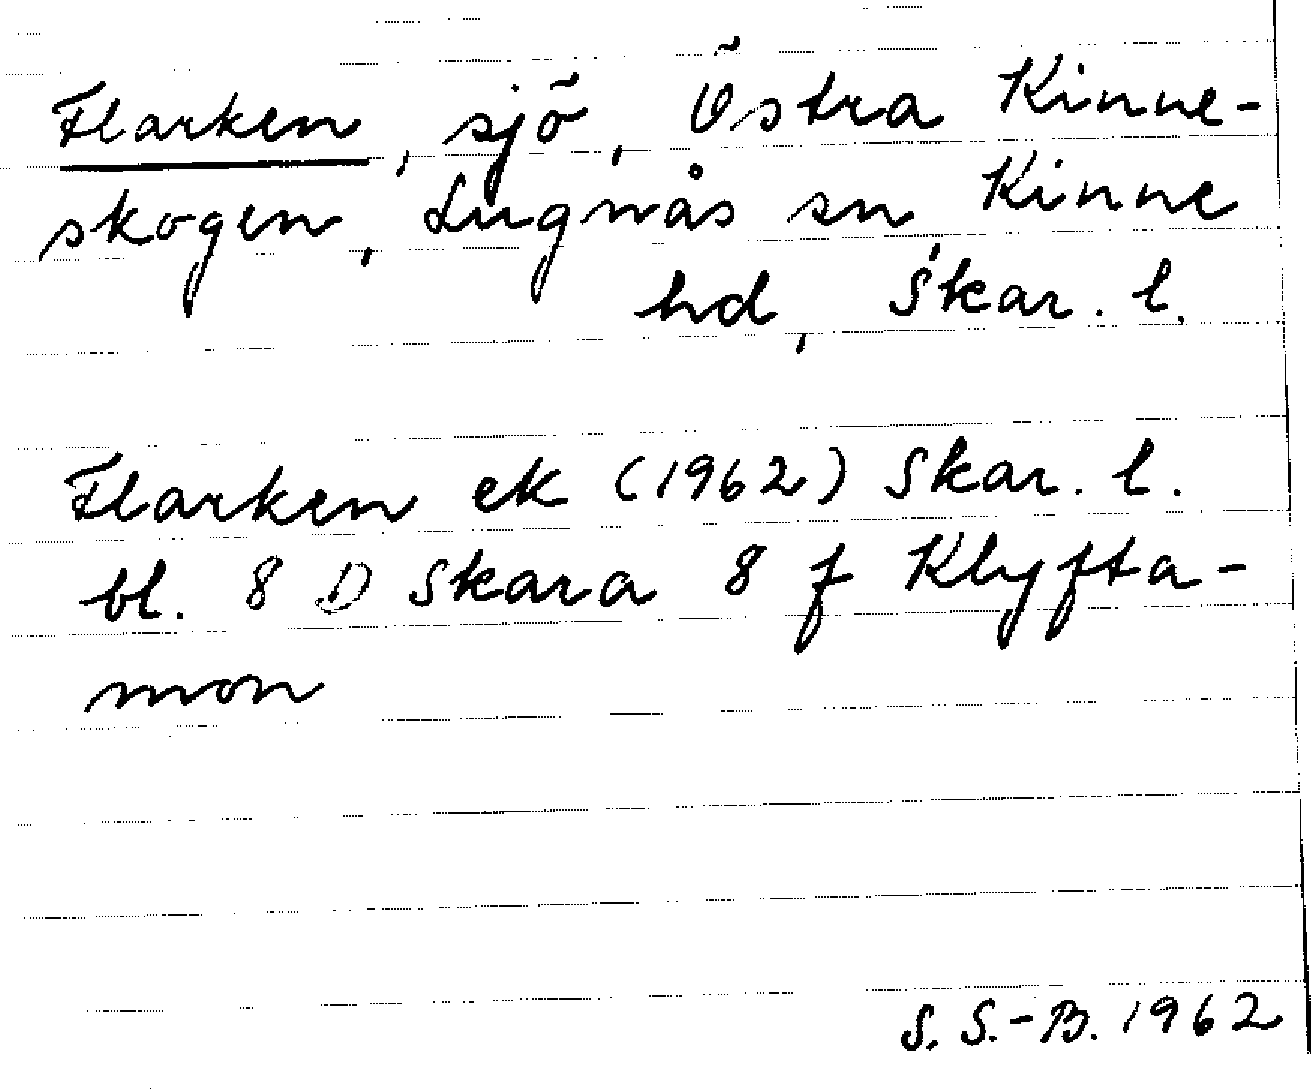 Flarken, sjö, Östra Kinne-
skogen, Lugnås sn, Kinne
hd, Skar. l.
Flarken ek (1962) Skar. l.
bl. 8 D Skara 8 f Klyfta-
mon
S. S.-B. 1962